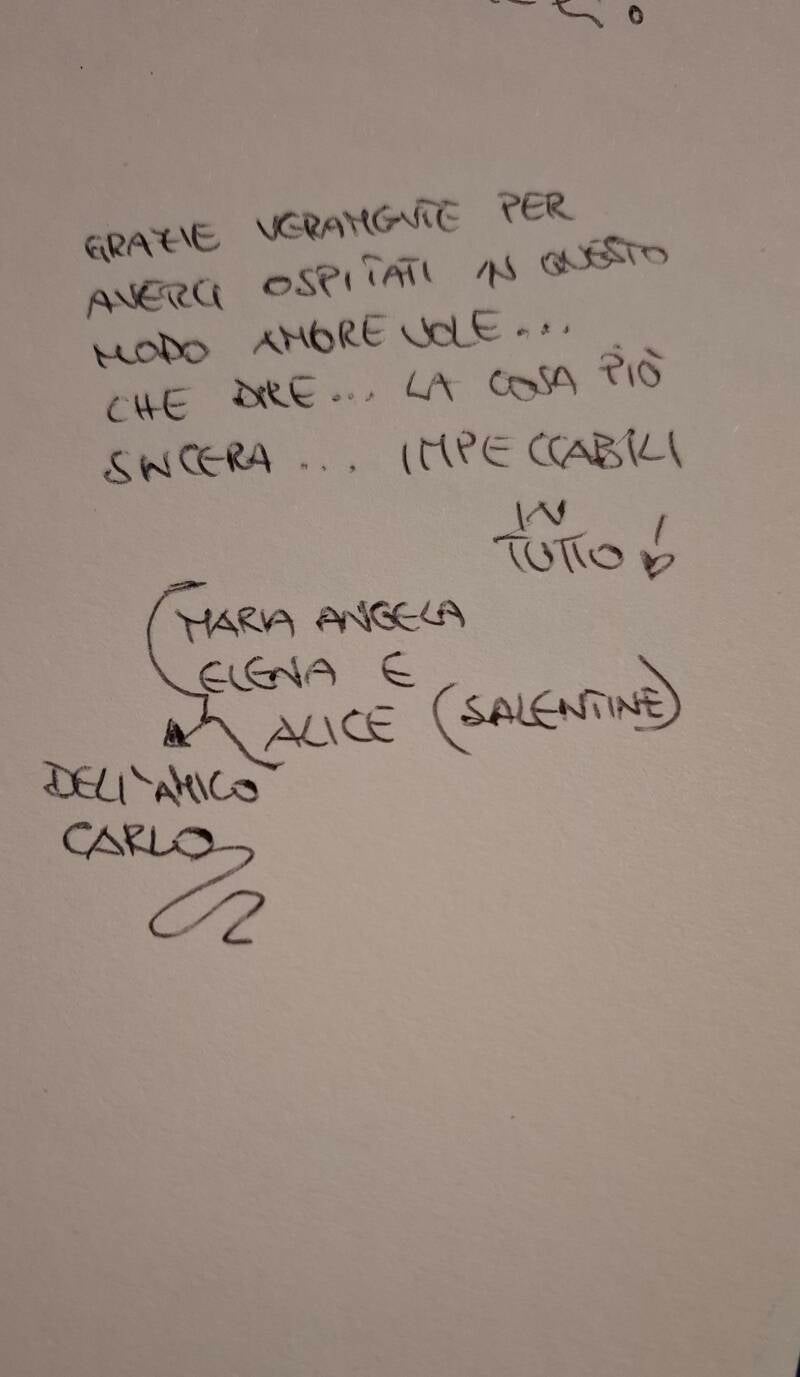 GRAZIE VERAMENTE PER
AVERCI OSPITATI IN QUESTO
MODO AMOREVOLE...
CHE DIRE... LA COSA PIÙ
SINCERA... IMPECCABILI
IN
TUTTO!
MARIA ANGELA
ELENA E
ALICE (SALENTINE)
DELL'AMICO
CARLO